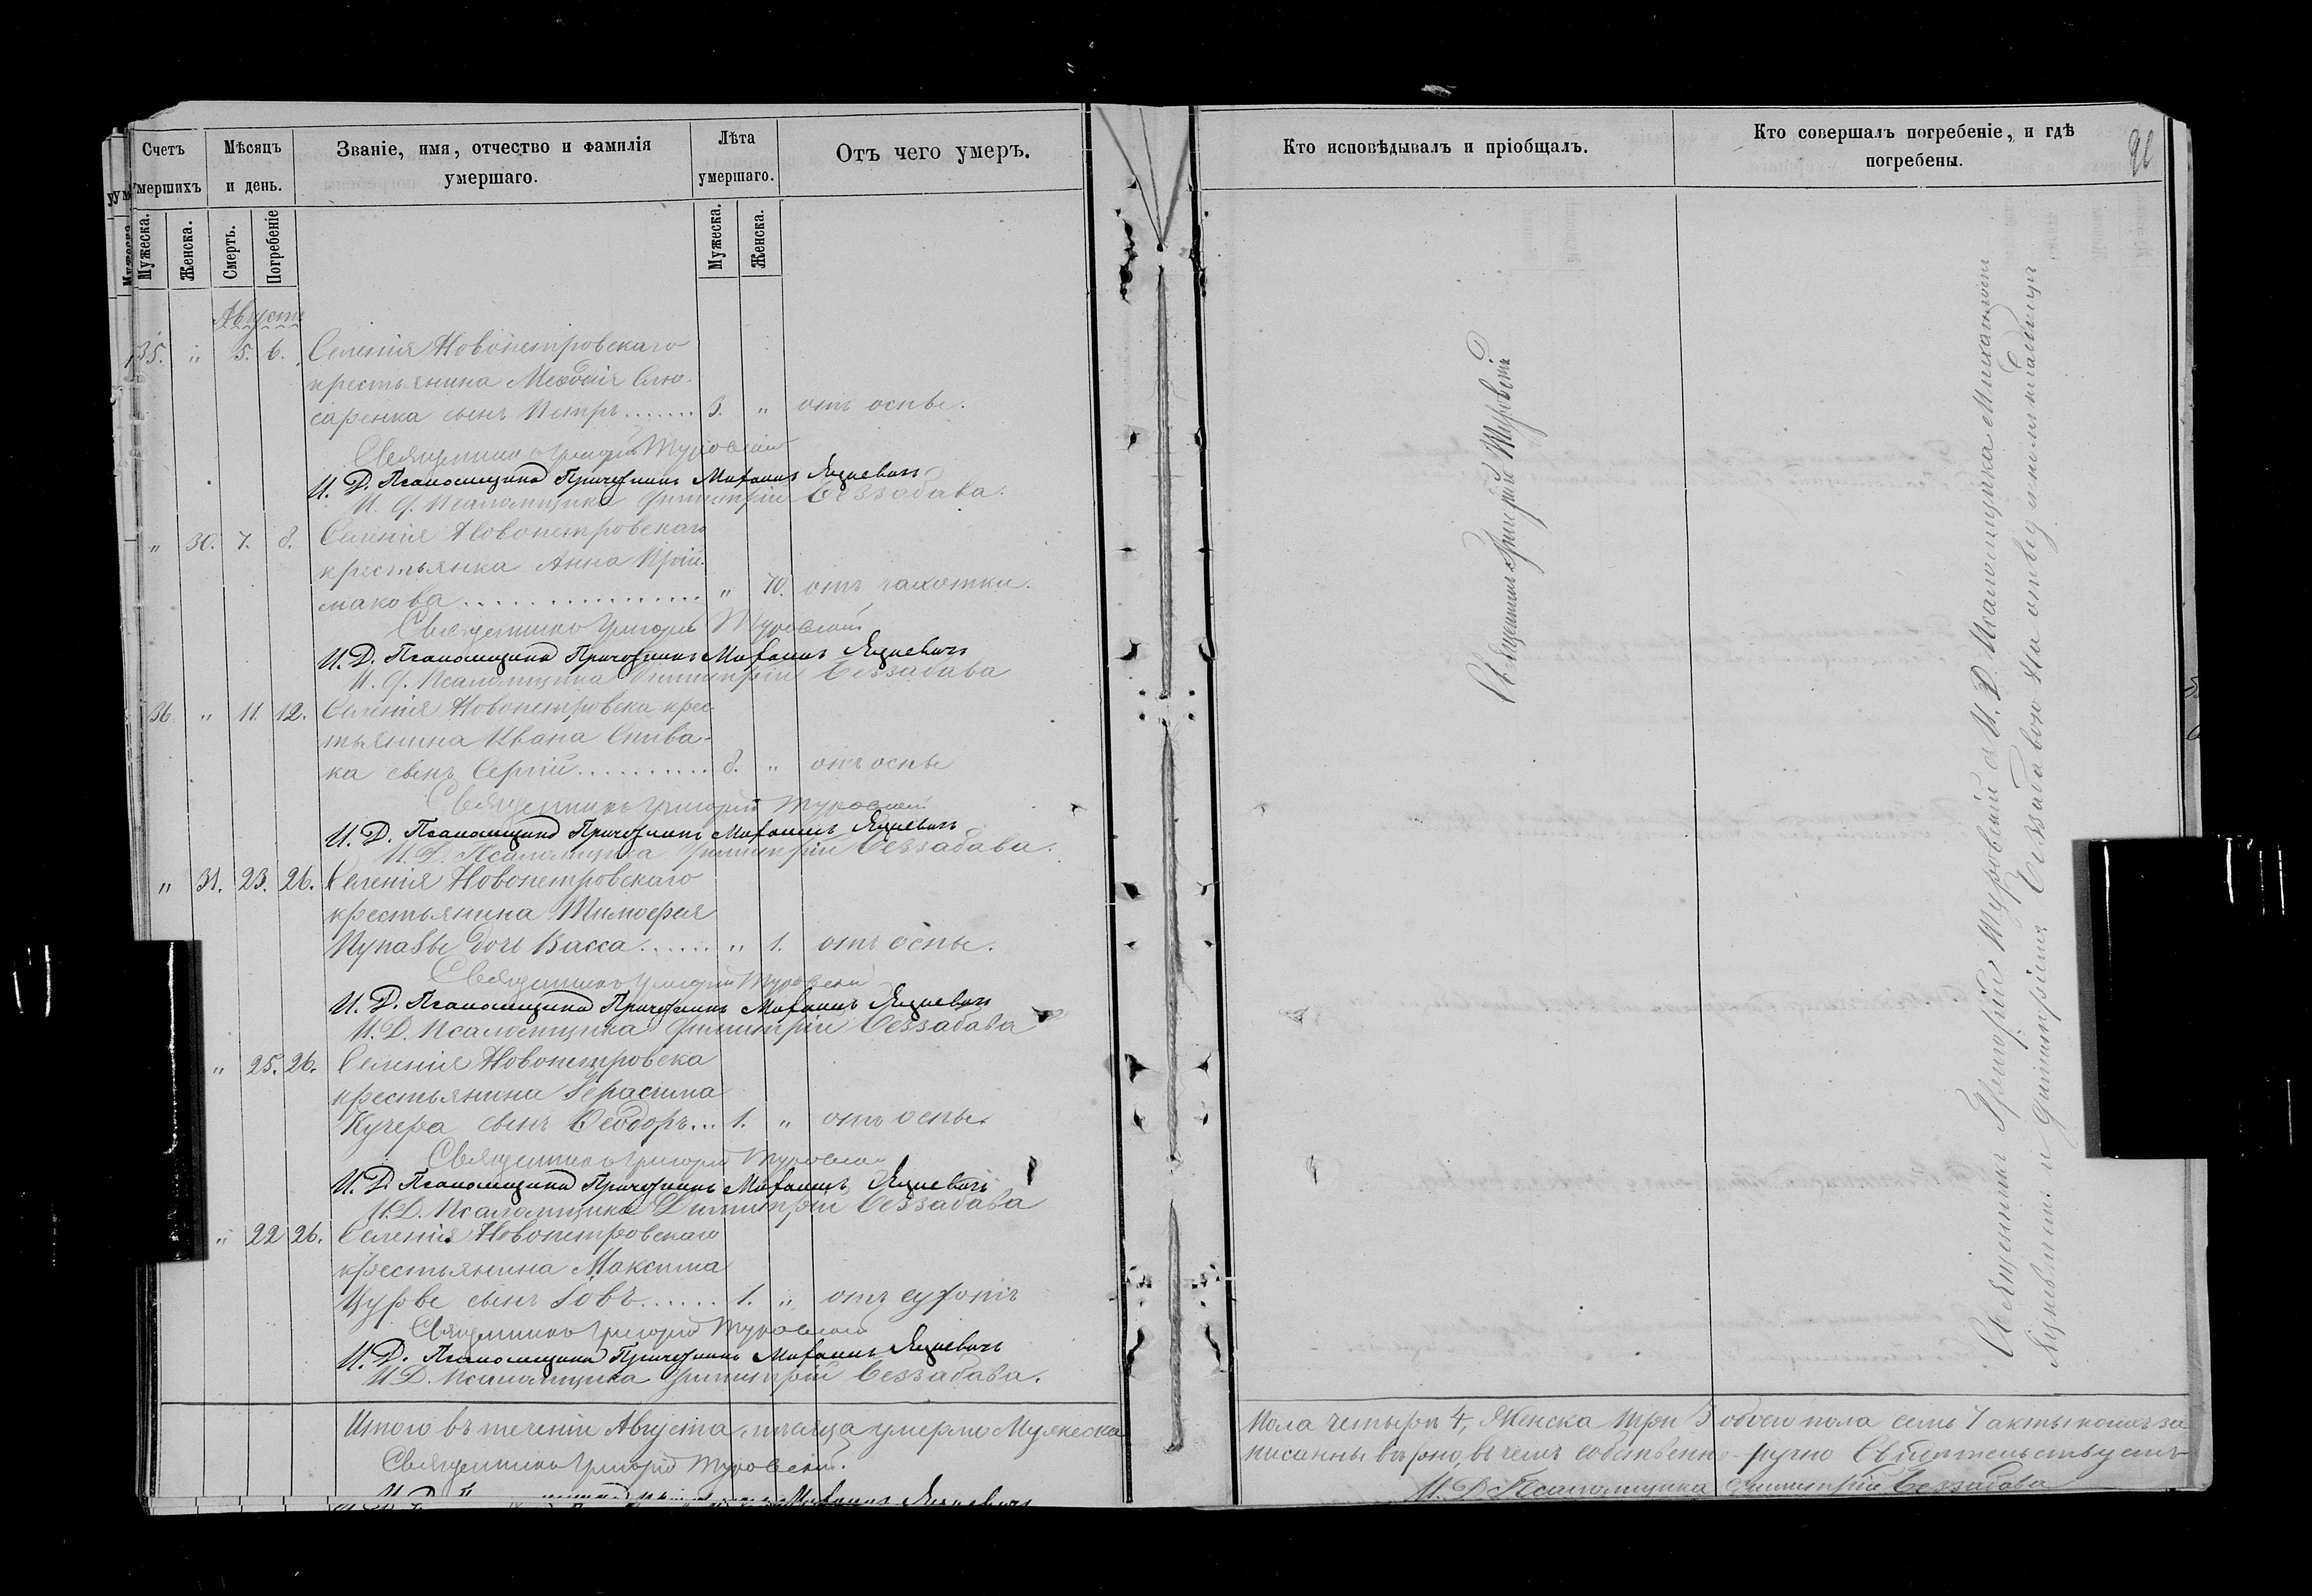 Счетъ умершихъ
Мѣсяцъ и день.
Званіе, имя, отчество и фамилія умершаго.
Лѣта умершаго.
Отъ чего умеръ.
Мужеска.
Женска.
Смерть.
Погребеніе
Мужеска.
Женска.
Августъ
35. " 5. 6. Селенія Новопетровскаго
крестьянина Меѳодія Слю-
саренка сынъ Петръ....... 3. " отъ оспы.
Священникъ Григорій Туровскій
И. Д. Псаломщика Причетникъ Михаилъ Яцкевичъ
И. Д. Псаломщика Димитрій Беззабава.
" 30. 7. 8. Селенія Новопетровскаго
крестьянка Анна Прій-
макова................ " 70. отъ чахотки.
Священникъ Григорій Туровскій
И. Д. Псаломщика Причетникъ Михаилъ Яцкевичъ
И. Д. Псаломщика Димитрій Беззабава
36. " 11. 12. Селенія Новопетровска крес-
тьянина Ивана Спива-
ка сынъ Сергій.......... 8. " отъ оспы
Священникъ Григорій Туровскій
И. Д. Псаломщика Причетникъ Михаилъ Яцкевичъ
И. Д. Псаломщика Димитрій Беззабава.
" 31. 23. 26. Селенія Новопетровскаго
крестьянина Тимоѳея
дочь Васса...... " 1. отъ оспы.
Священникъ Григорій Туровскій
И. Д. Псаломщика Причетникъ Михаилъ Яцкевичъ
И. Д. Псаломщика Димитрій Беззабава
" 25. 26. Селенія Новопетровска
крестьянина Герасима
Кучера сынъ Ѳеодоръ... 1. " отъ оспы.
Священникъ Григорій Туровскій
И. Д. Псаломщика Причетникъ Михаилъ Яцкевичъ
И. Д. Псаломщика Димитрій Беззабава
" 22 26. Селенія Новопетровскаго
крестьянина Максима
сынъ Іовъ...... 1. " отъ
Священникъ Григорій Туровскій
И. Д. Псаломщика Причетникъ Михаилъ Яцкевичъ
И. Д. Псаломщика Димитрій Беззабава.
Итого въ теченіи Августа мѣсяца умерло Мужеска
Священникъ Григорій Туровскій.
Михаилъ Яцкевичъ
Кто исповѣдывалъ и пріобщалъ.
Кто совершалъ погребеніе, и гдѣ погребены.
Священникъ Григорій Туровскій
Священникъ Григорій Туровскій съ И. Д. Псаломщика Михаиломъ
Яцкевичемъ и Димитріемъ Беззабавою На
пола четыри 4, Женска три 3 обоего пола семь 7 акты
писанны вѣрно, въ чемъ собственно-ручно Свидѣтельствуемъ
И. Д. Псаломщика Димитрій Беззабава